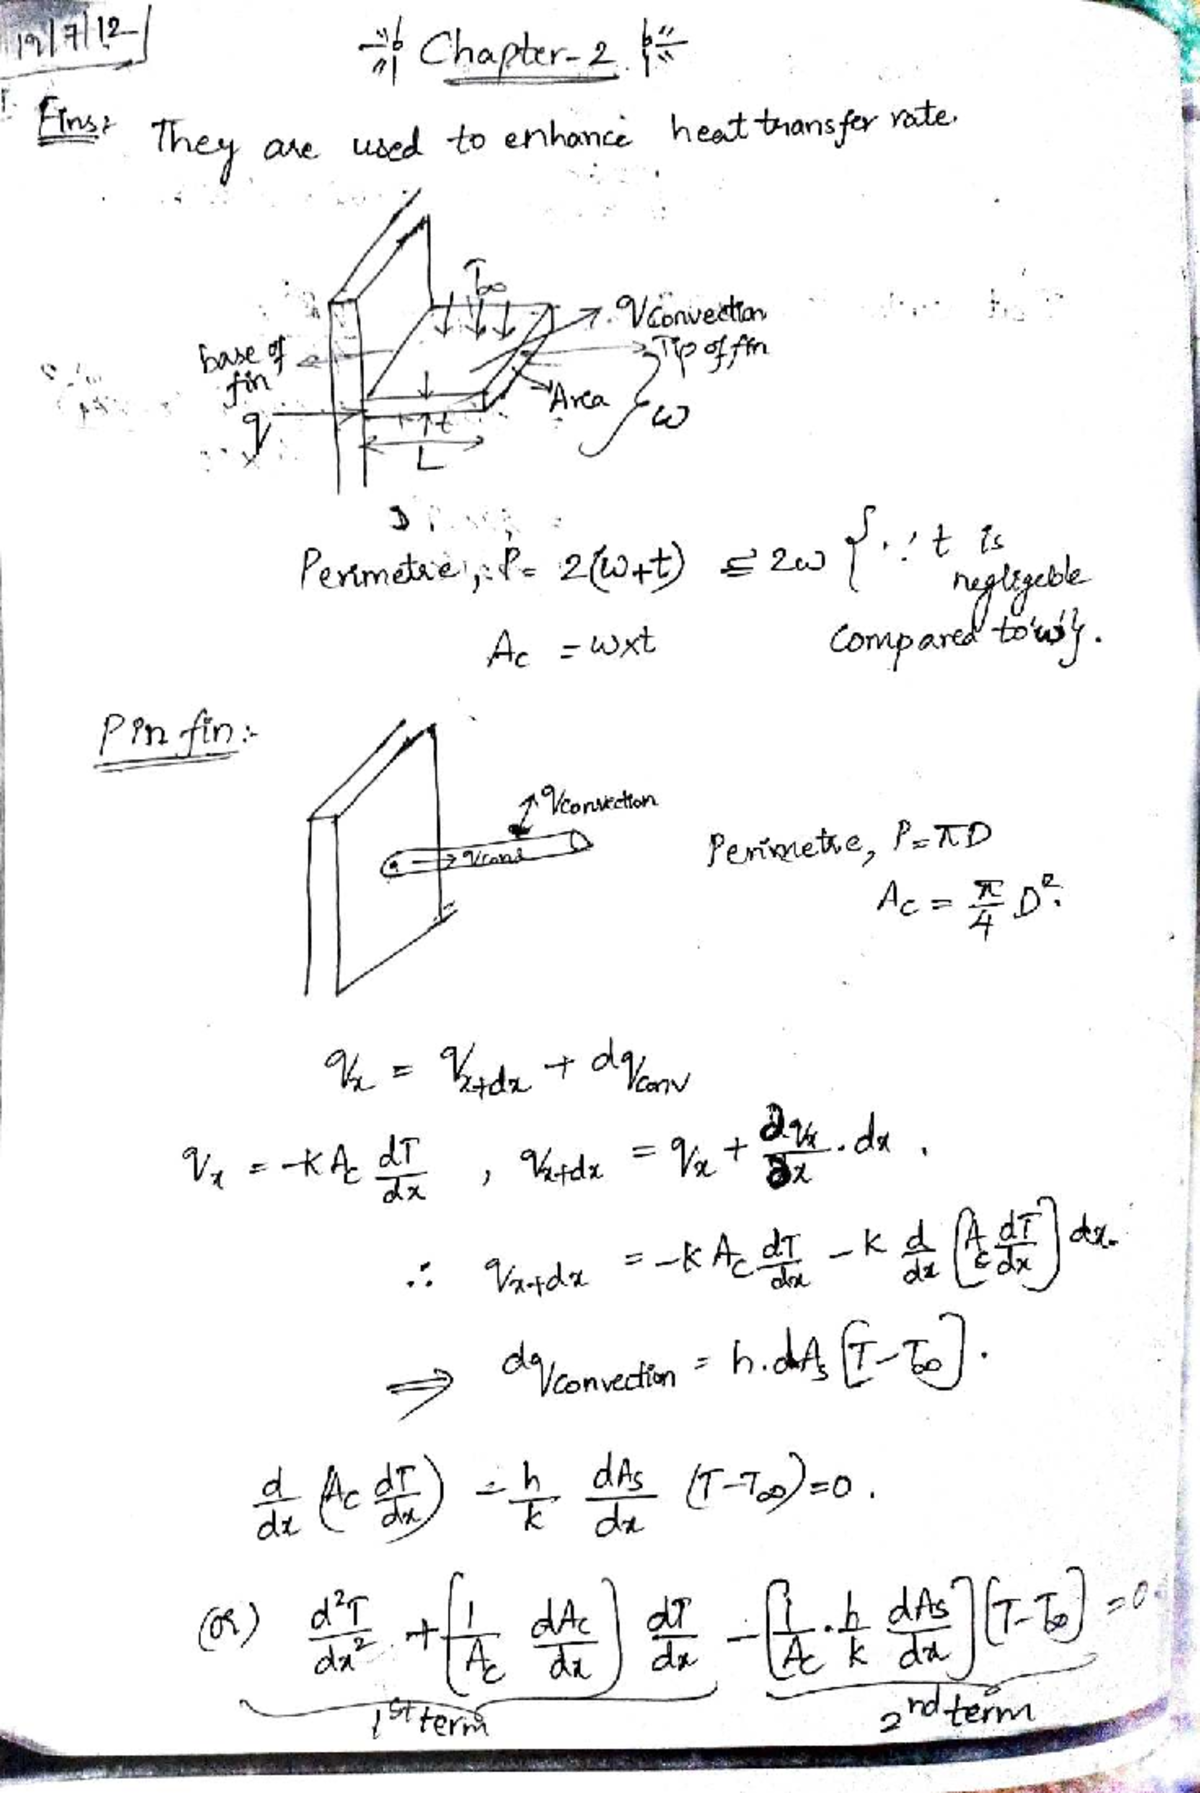 19/7/12
Chapter-2
Fins:
They are used to enhance heat transfer rate.
T∞
qconvection
base of fin
Tip of fin
Area
q
t
w
L
Perimetre, P = 2(w+t) ≅ 2w {∵ t is negligeble
compared to 'w'}.
Ac = w×t
Pin fin:-
qconvection
qcond
Perimetre, P=πD
Ac = π/4 D².
qx = qx+dx + dqconv
qx = -k Ac dT/dx , qx+dx = qx + ∂qx/∂x . dx .
∴ qx+dx = -k Ac dT/dx - k d/dx [Ac dT/dx] dx.
⇒ dqconvection = h.dAs [T-T∞].
d/dx (Ac dT/dx) - h/k dAs/dx (T-T∞)=0.
(or) d²T/dx² + (1/Ac dAc/dx) dT/dx - [1/Ac . h/k dAs/dx] [T-T∞] =0.
1st term
2nd term